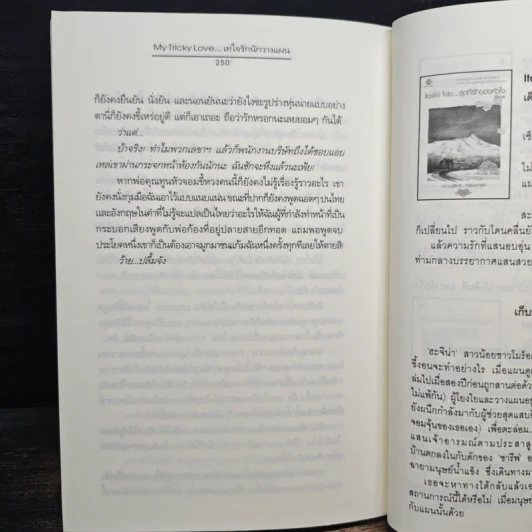 My Tricky Love... เทใจรักนักวางแผน
250
ก็ยังคงยืนยัน นั่งยัน และนอนยันนะว่ายังไงซะรูปร่างหุ่นนายแบบอย่าง
ตานี่ก็ยังคงขี้เหร่อยู่ดี แต่ก็เอาเถอะ ถือว่ารักหรอกนะเลยยอมๆ กันได้
ว่าแต่...
ย้าจริง! ทำไมพวกเลขาฯ แล้วก็พนักงานบริษัทถึงได้ชอบแอบ
เหล่เขาผ่านกระจกหน้าห้องกันนักนะ ฉันชักจะหึงแล้วนะเฟ้ย!
หากพ่อคุณทูนหัวจอมขี้หวงคนนี้ก็ยังคงไม่รู้เรื่องรู้ราวอะไร เขา
ยังคงนั่งกุมมือฉันเอาไว้แบบแนบแน่น ขณะที่ปากก็ยังคงพูดฉอดๆ ปนไทย
และอังกฤษในคำที่ไม่รู้จะแปลเป็นไทยว่าอะไรให้ฉันผู้ที่กำลังทำหน้าที่เป็น
กระบอกเสียงพูดกับพ่อก้องที่อยู่ปลายสายอีกทอด แถมพอพูดจบ
ประโยคหนึ่งเขาก็เป็นต้องเอาจมูกมาชนแก้มฉันหนึ่งครั้งทุกทีเลยให้ตายสิ
ว้าย...ปลื้มจัง
สะ
ก็เปลี่ยนไป ราวกับโดนคลื่นยั
แล้วความรักที่แสนอบอุ่น
ท่ามกลางบรรยากาศแสนสวย
เก็บ
'ฮะจีน่า' สาวน้อยชาวโมร็อ
ซึ้งอนจะทำอย่างไร เมื่อแผนดู
ล่มไปเมื่อสองปีก่อนถูกสานต่อด้ว
ไม่แพ้กัน) ผู้โยงใยและวางแผนอยู่
ยังผนึกกำลังมากับผู้ช่วยสุดแสบ
จอมจุ้นของเธอเอง) เพื่อตะล่อม...
แสนเจ้าอารมณ์ตามประสาลู
บ้านตกลงในกับดักของ 'ชารีฟ' อ
ฉายามนุษย์น้ำแข็ง ซึ่งเดินทางม
เธอจะหาทางโต้กลับแล้วเอ
สถานการณ์นี้ได้หรือไม่ เมื่อมนุษย์
กับแผนนั้นด้วย